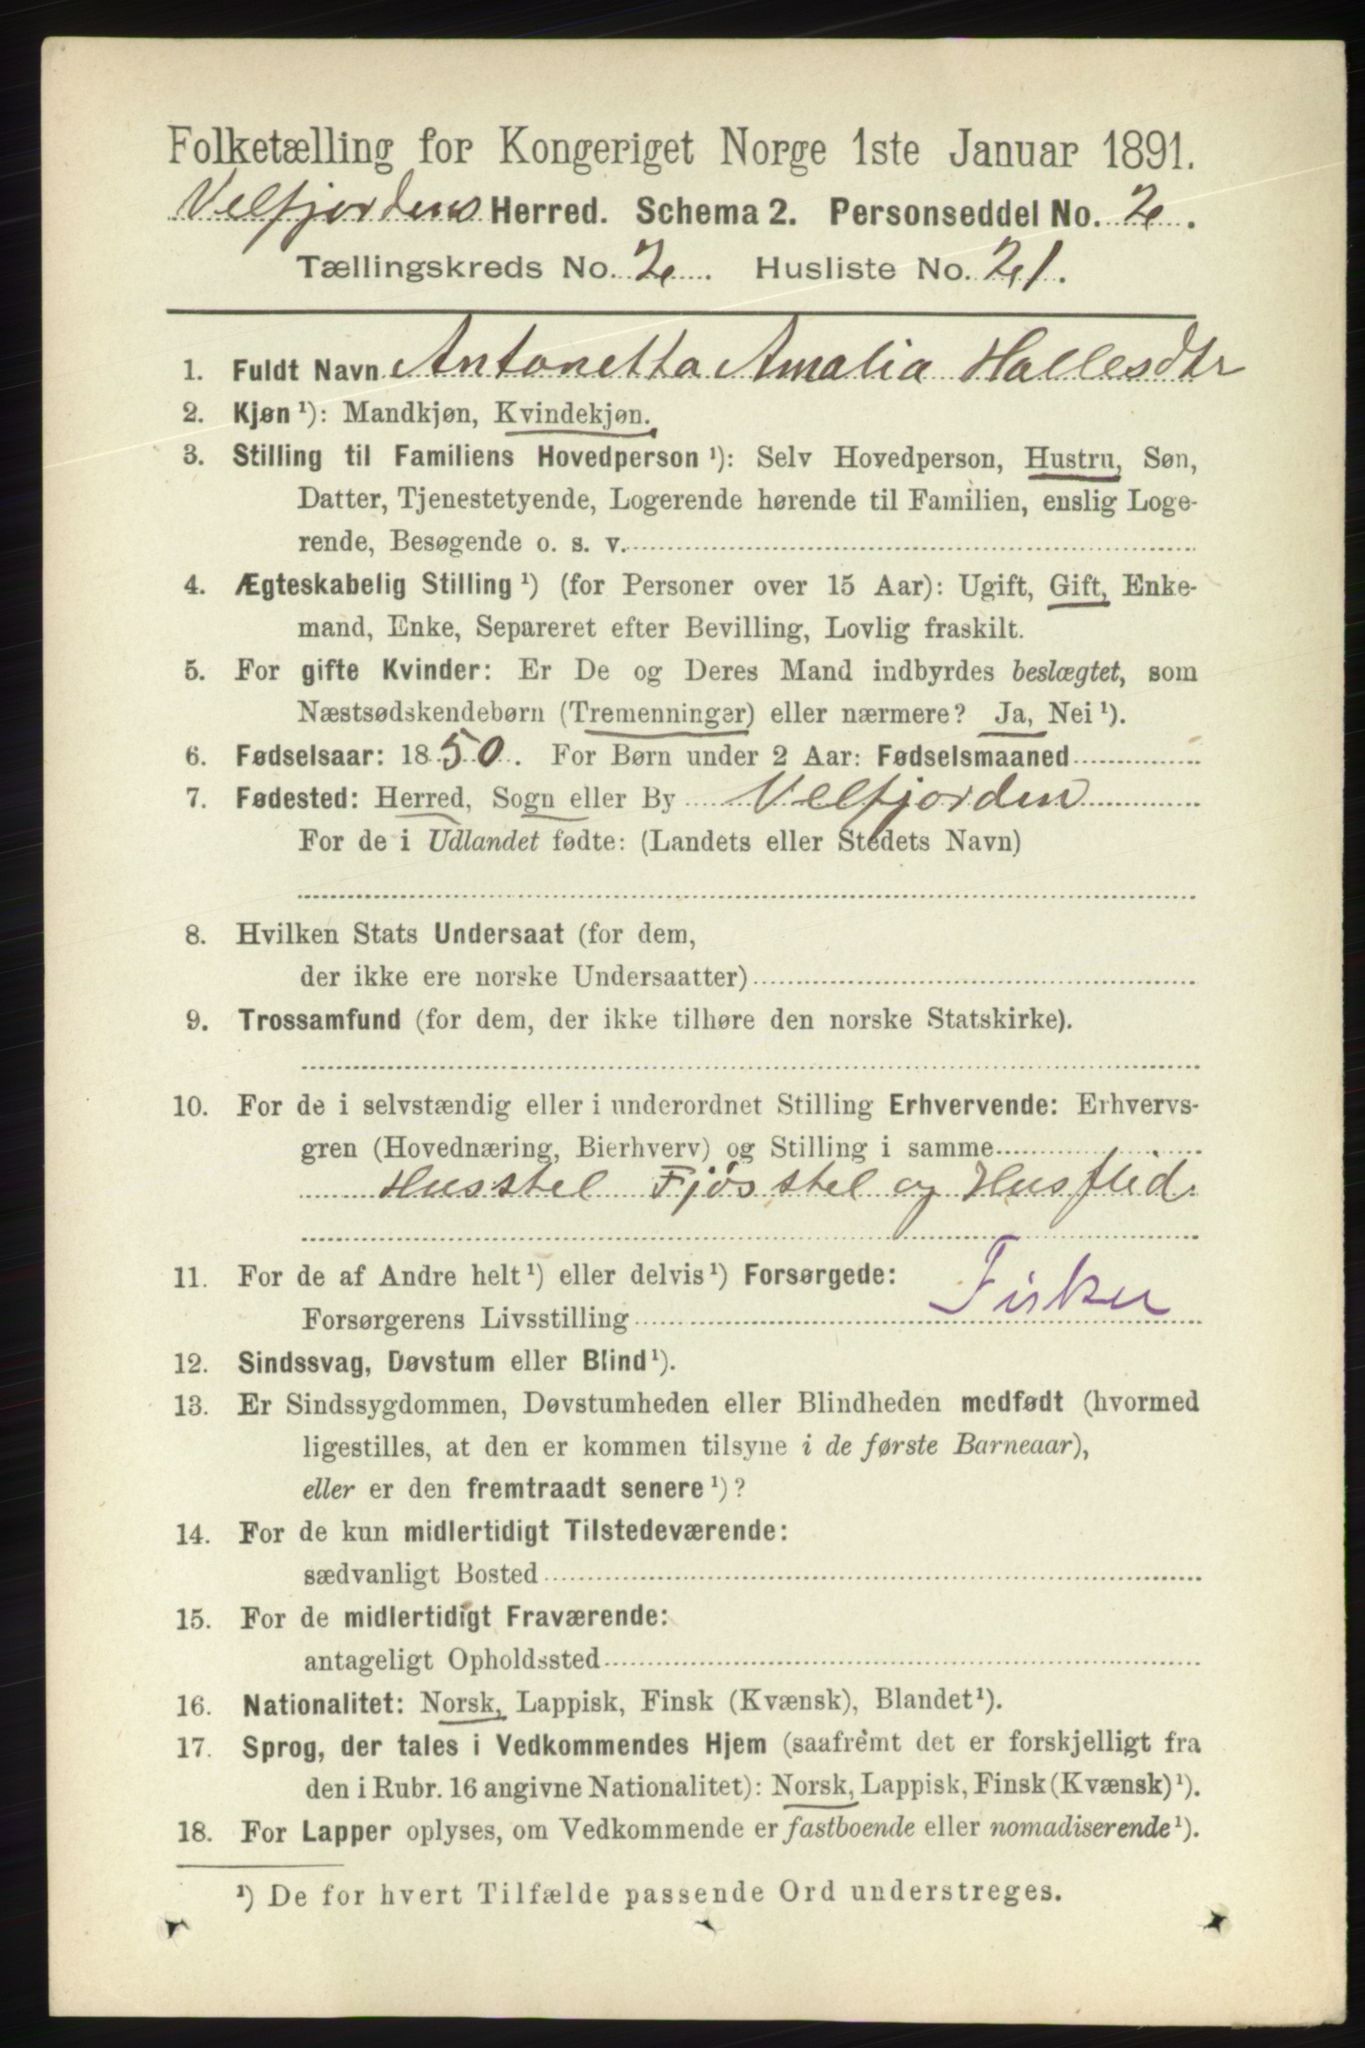 Folketælling for Kongeriget Norge 1ste Januar 1891.
Velfjordens Herred. Schema 2. Personseddel No. 2.
Tællingskreds No. 2. Husliste No. 21.
1. Fuldt Navn Antonetta Amalia Hallesdtr
2. Kjøn ¹): Mandkjøn, Kvindekjøn.
3. Stilling til Familiens Hovedperson ¹): Selv Hovedperson, Hustru, Søn,
Datter, Tjenestetyende, Logerende hørende til Familien, enslig Loge-
rende, Besøgende o. s. v.
4. Ægteskabelig Stilling ¹) (for Personer over 15 Aar): Ugift, Gift, Enke-
mand, Enke, Separeret efter Bevilling, Lovlig fraskilt.
5. For gifte Kvinder: Er De og Deres Mand indbyrdes beslægtet, som
Næstsødskendebørn (Tremenninger) eller nærmere? Ja, Nei ¹).
6. Fødselsaar: 1850. For Børn under 2 Aar: Fødselsmaaned
7. Fødested: Herred, Sogn eller By Velfjorden
For de i Udlandet fødte: (Landets eller Stedets Navn)
8. Hvilken Stats Undersaat (for dem,
der ikke ere norske Undersaatter)
9. Trossamfund (for dem, der ikke tilhøre den norske Statskirke).
10. For de i selvstændig eller i underordnet Stilling Erhvervende: Erhvervs-
gren (Hovednæring, Bierhverv) og Stilling i samme
Husstel Fjøsstel og Husflid.
11. For de af Andre helt ¹) eller delvis ¹) Forsørgede: Fisker
Forsørgerens Livsstilling
12. Sindssvag, Døvstum eller Blind ¹).
13. Er Sindssygdommen, Døvstumheden eller Blindheden medfødt (hvormed
ligestilles, at den er kommen tilsyne i de første Barneaar),
eller er den fremtraadt senere ¹)?
14. For de kun midlertidigt Tilstedeværende:
sædvanligt Bosted
15. For de midlertidigt Fraværende:
antageligt Opholdssted
16. Nationalitet: Norsk, Lappisk, Finsk (Kvænsk), Blandet ¹).
17. Sprog, der tales i Vedkommendes Hjem (saafremt det er forskjelligt fra
den i Rubr. 16 angivne Nationalitet): Norsk, Lappisk, Finsk (Kvænsk) ¹).
18. For Lapper oplyses, om Vedkommende er fastboende eller nomadiserende ¹).
¹) De for hvert Tilfælde passende Ord understreges.